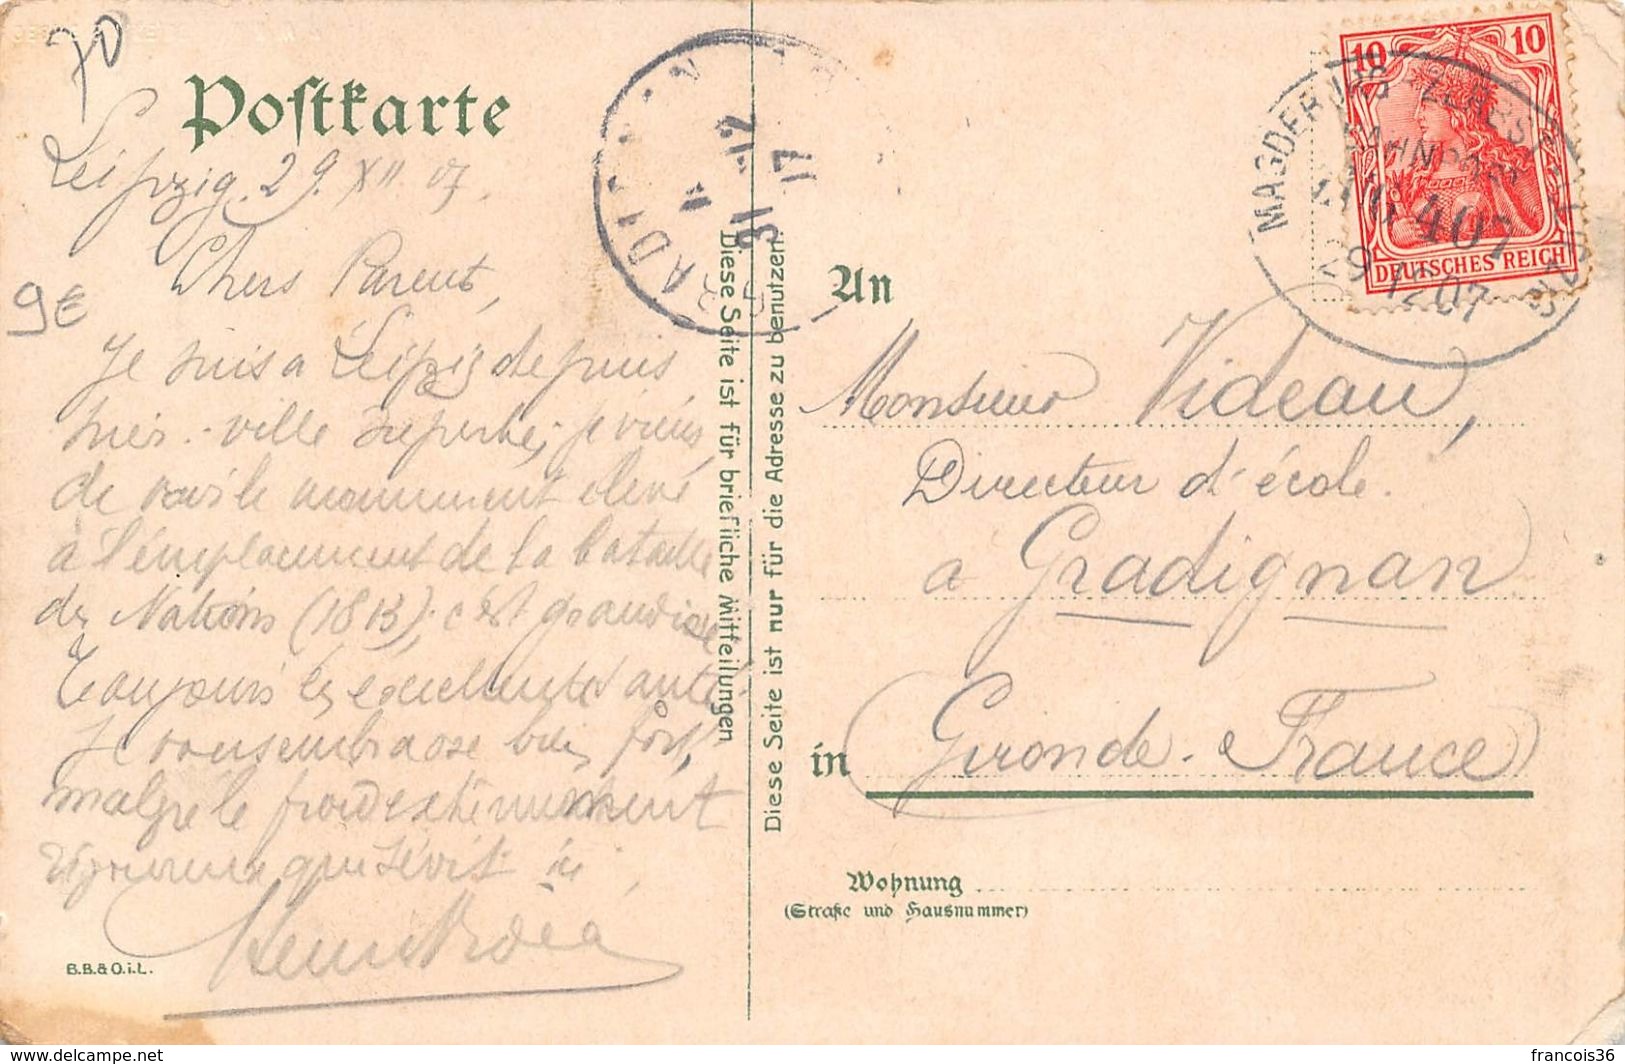 70
Postkarte
Leipzig. 29. XII 07.
Chers Parents,
9€
Je suis à Leipzig depuis
hier. - ville superbe; je viens
de voir le monument élevé
à l'emplacement de la bataille
des Nations (1813); c'est grandiose
Toujours en excellente santé
Je vous embrasse bien fort,
malgré le froid extrêmement
rigoureux qui sévit ici
B.B.&O.i.L.
GRADIGNAN
31 -12
17
Diese Seite ist für briefliche Mitteilungen
Diese Seite ist nur für die Adresse zu benutzen
10 10
DEUTSCHES REICH
MAGDEBURG - ZERBST - LEIPZIG
BAHNPOST
ZUG 407
29 12 07
An
Monsieur Videau,
Directeur d'école.
à Gradignan
in
Gironde - France
Wohnung
(Straße und Hausnummer)
delcampe.net
francois36